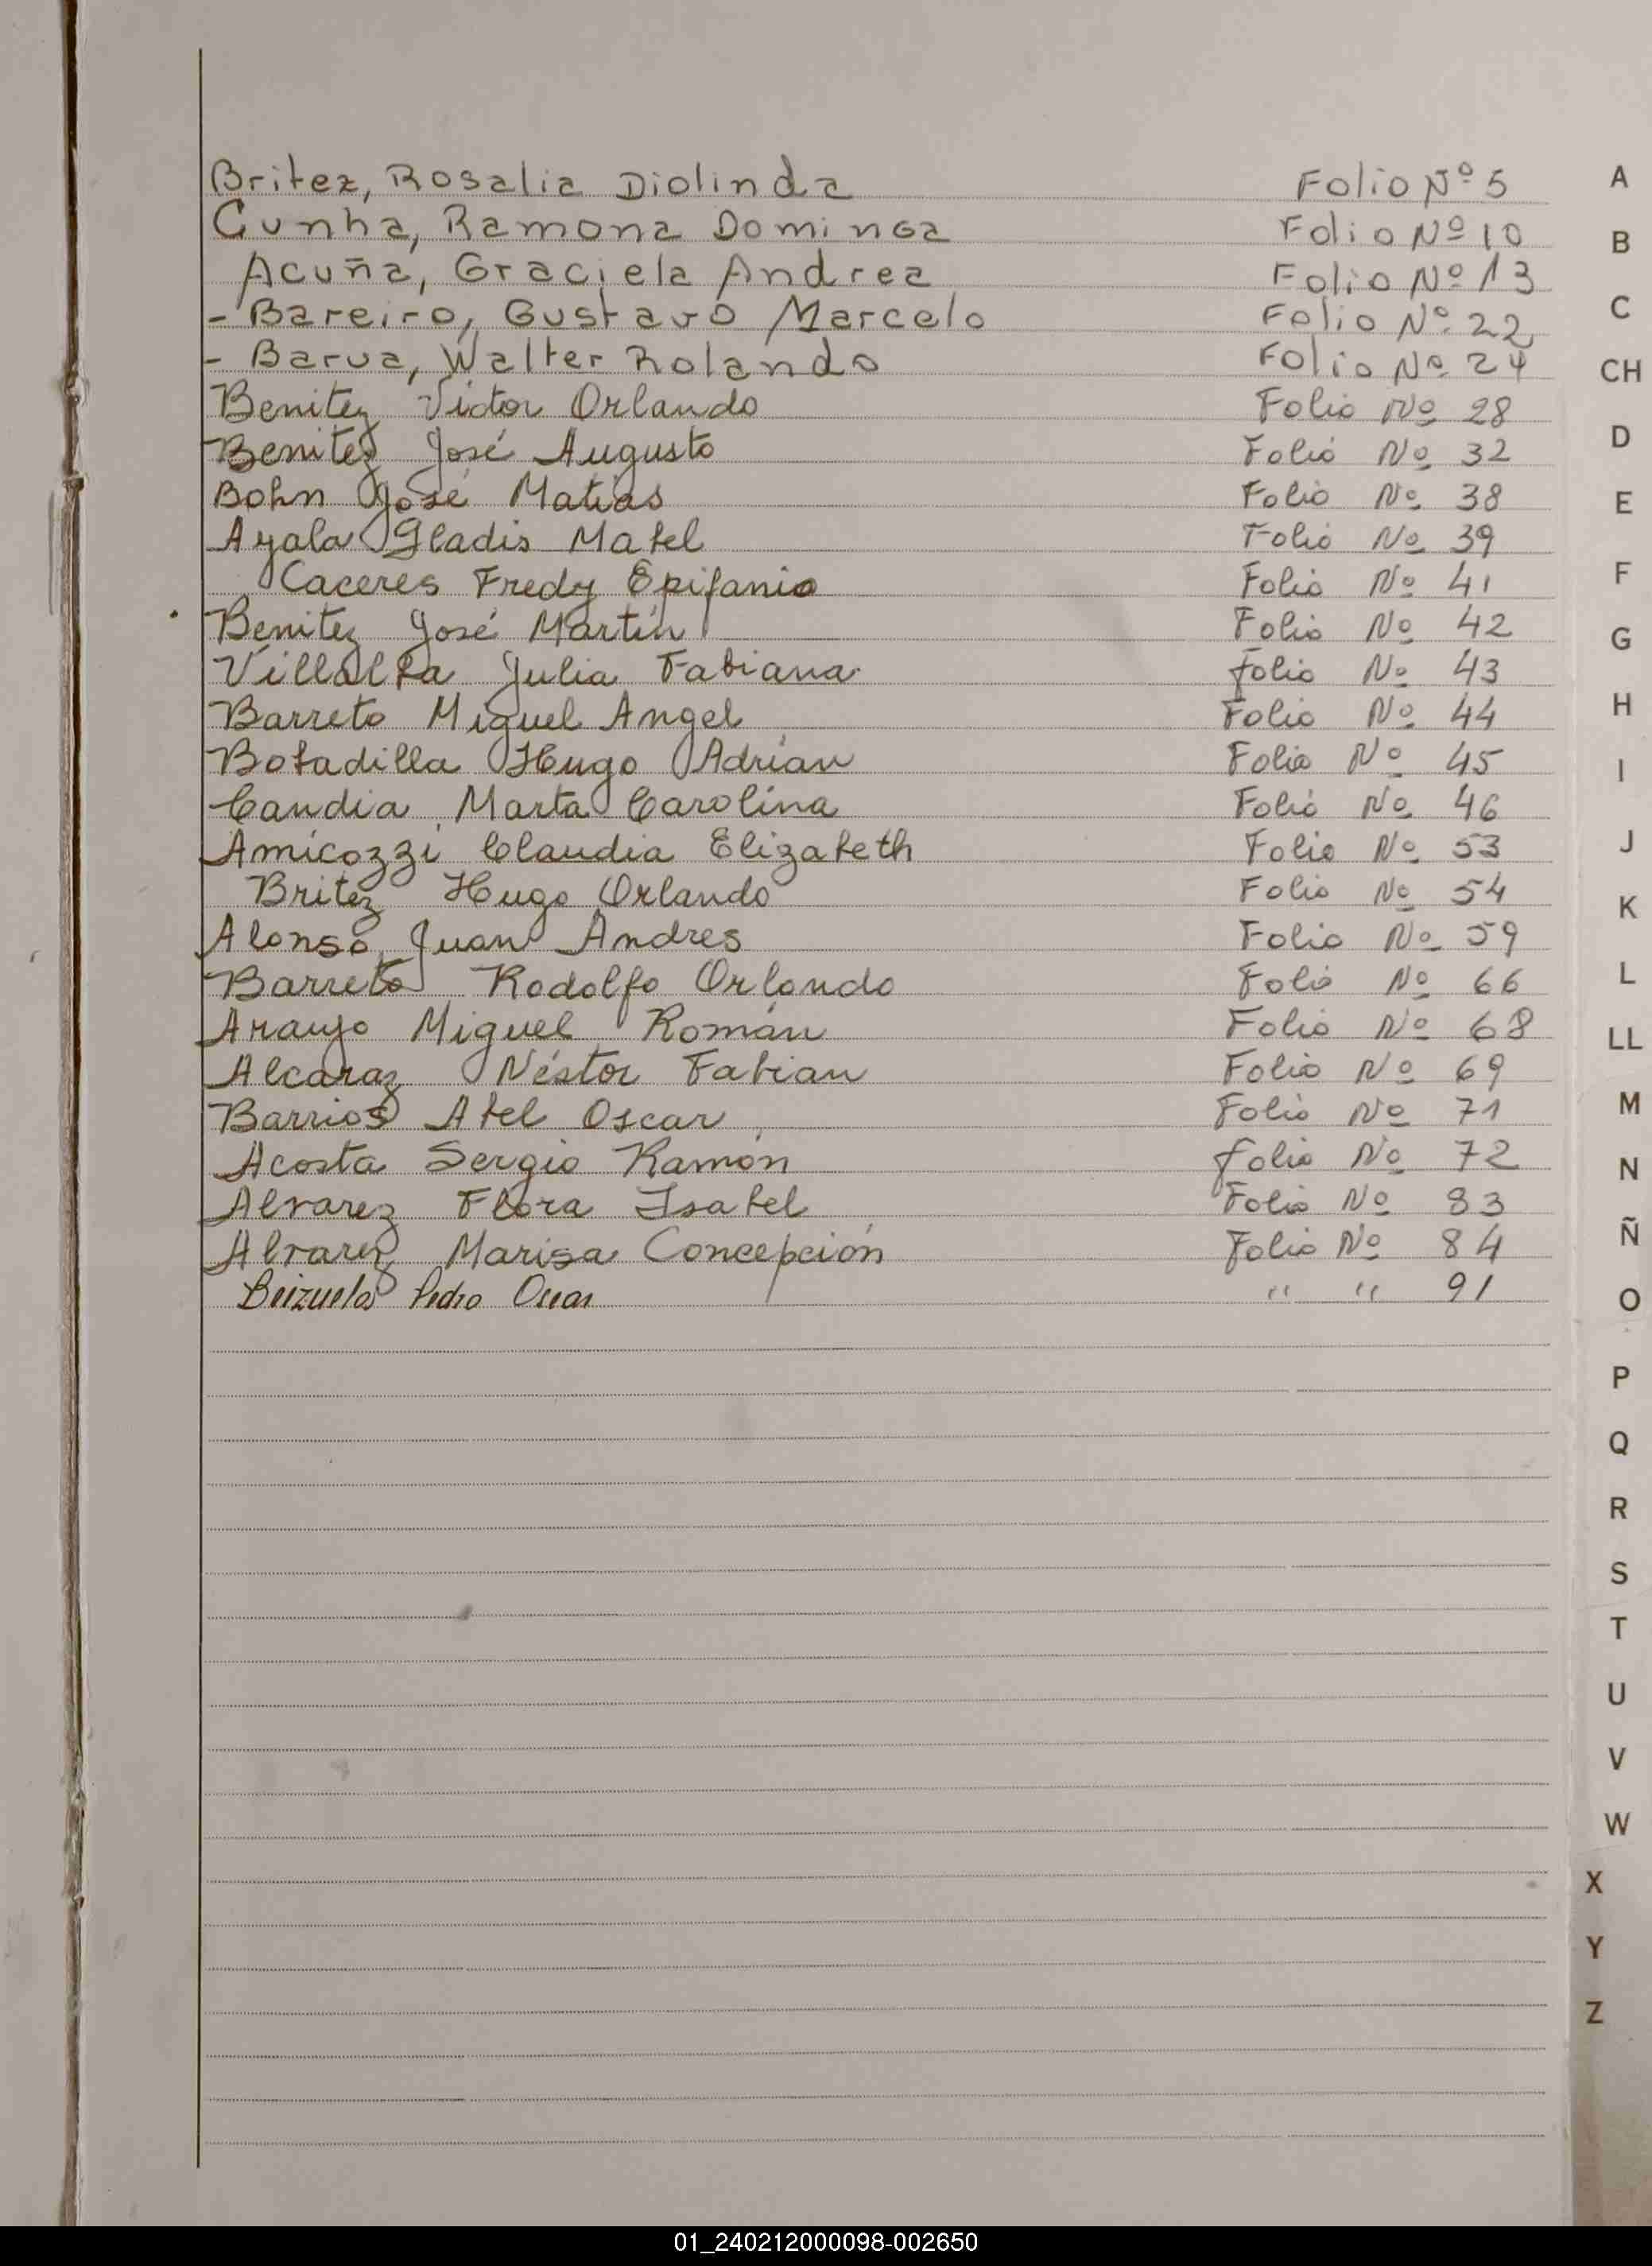 Britez, Rosalia Diolinda Folio Nº 5
Cunha, Ramona Dominga Folio Nº 10
Acuña, Graciela Andrea Folio Nº 13
- Bareiro, Gustavo Marcelo Folio Nº 22
- Barua, Walter Rolando Folio Nº 24
Benitez Victor Orlando Folio Nº 28
Benitez José Augusto Folio Nº 32
Bohn José Matias Folio Nº 38
Ayala Gladis Mabel Folio Nº 39
Caceres Fredy Epifanio Folio Nº 41
Benitez José Martín Folio Nº 42
Villalba Julia Fabiana Folio Nº 43
Barreto Miguel Angel Folio Nº 44
Bobadilla Hugo Adrián Folio Nº 45
Candia Marta Carolina Folio Nº 46
Amicozzi Claudia Elizabeth Folio Nº 53
Britez Hugo Orlando Folio Nº 54
Alonso Juan Andres Folio Nº 59
Barreto Rodolfo Orlando Folio Nº 66
Araujo Miguel Román Folio Nº 68
Alcaraz Néstor Fabian Folio Nº 69
Barrios Abel Oscar Folio Nº 71
Acosta Sergio Ramón Folio Nº 72
Alvarez Flora Isabel Folio Nº 83
Alvarez Marisa Concepción Folio Nº 84
Pedro Oscar " " 91
A
B
C
CH
D
E
F
G
H
I
J
K
L
LL
M
N
Ñ
O
P
Q
R
S
T
U
V
W
X
Y
Z
01_240212000098-002650